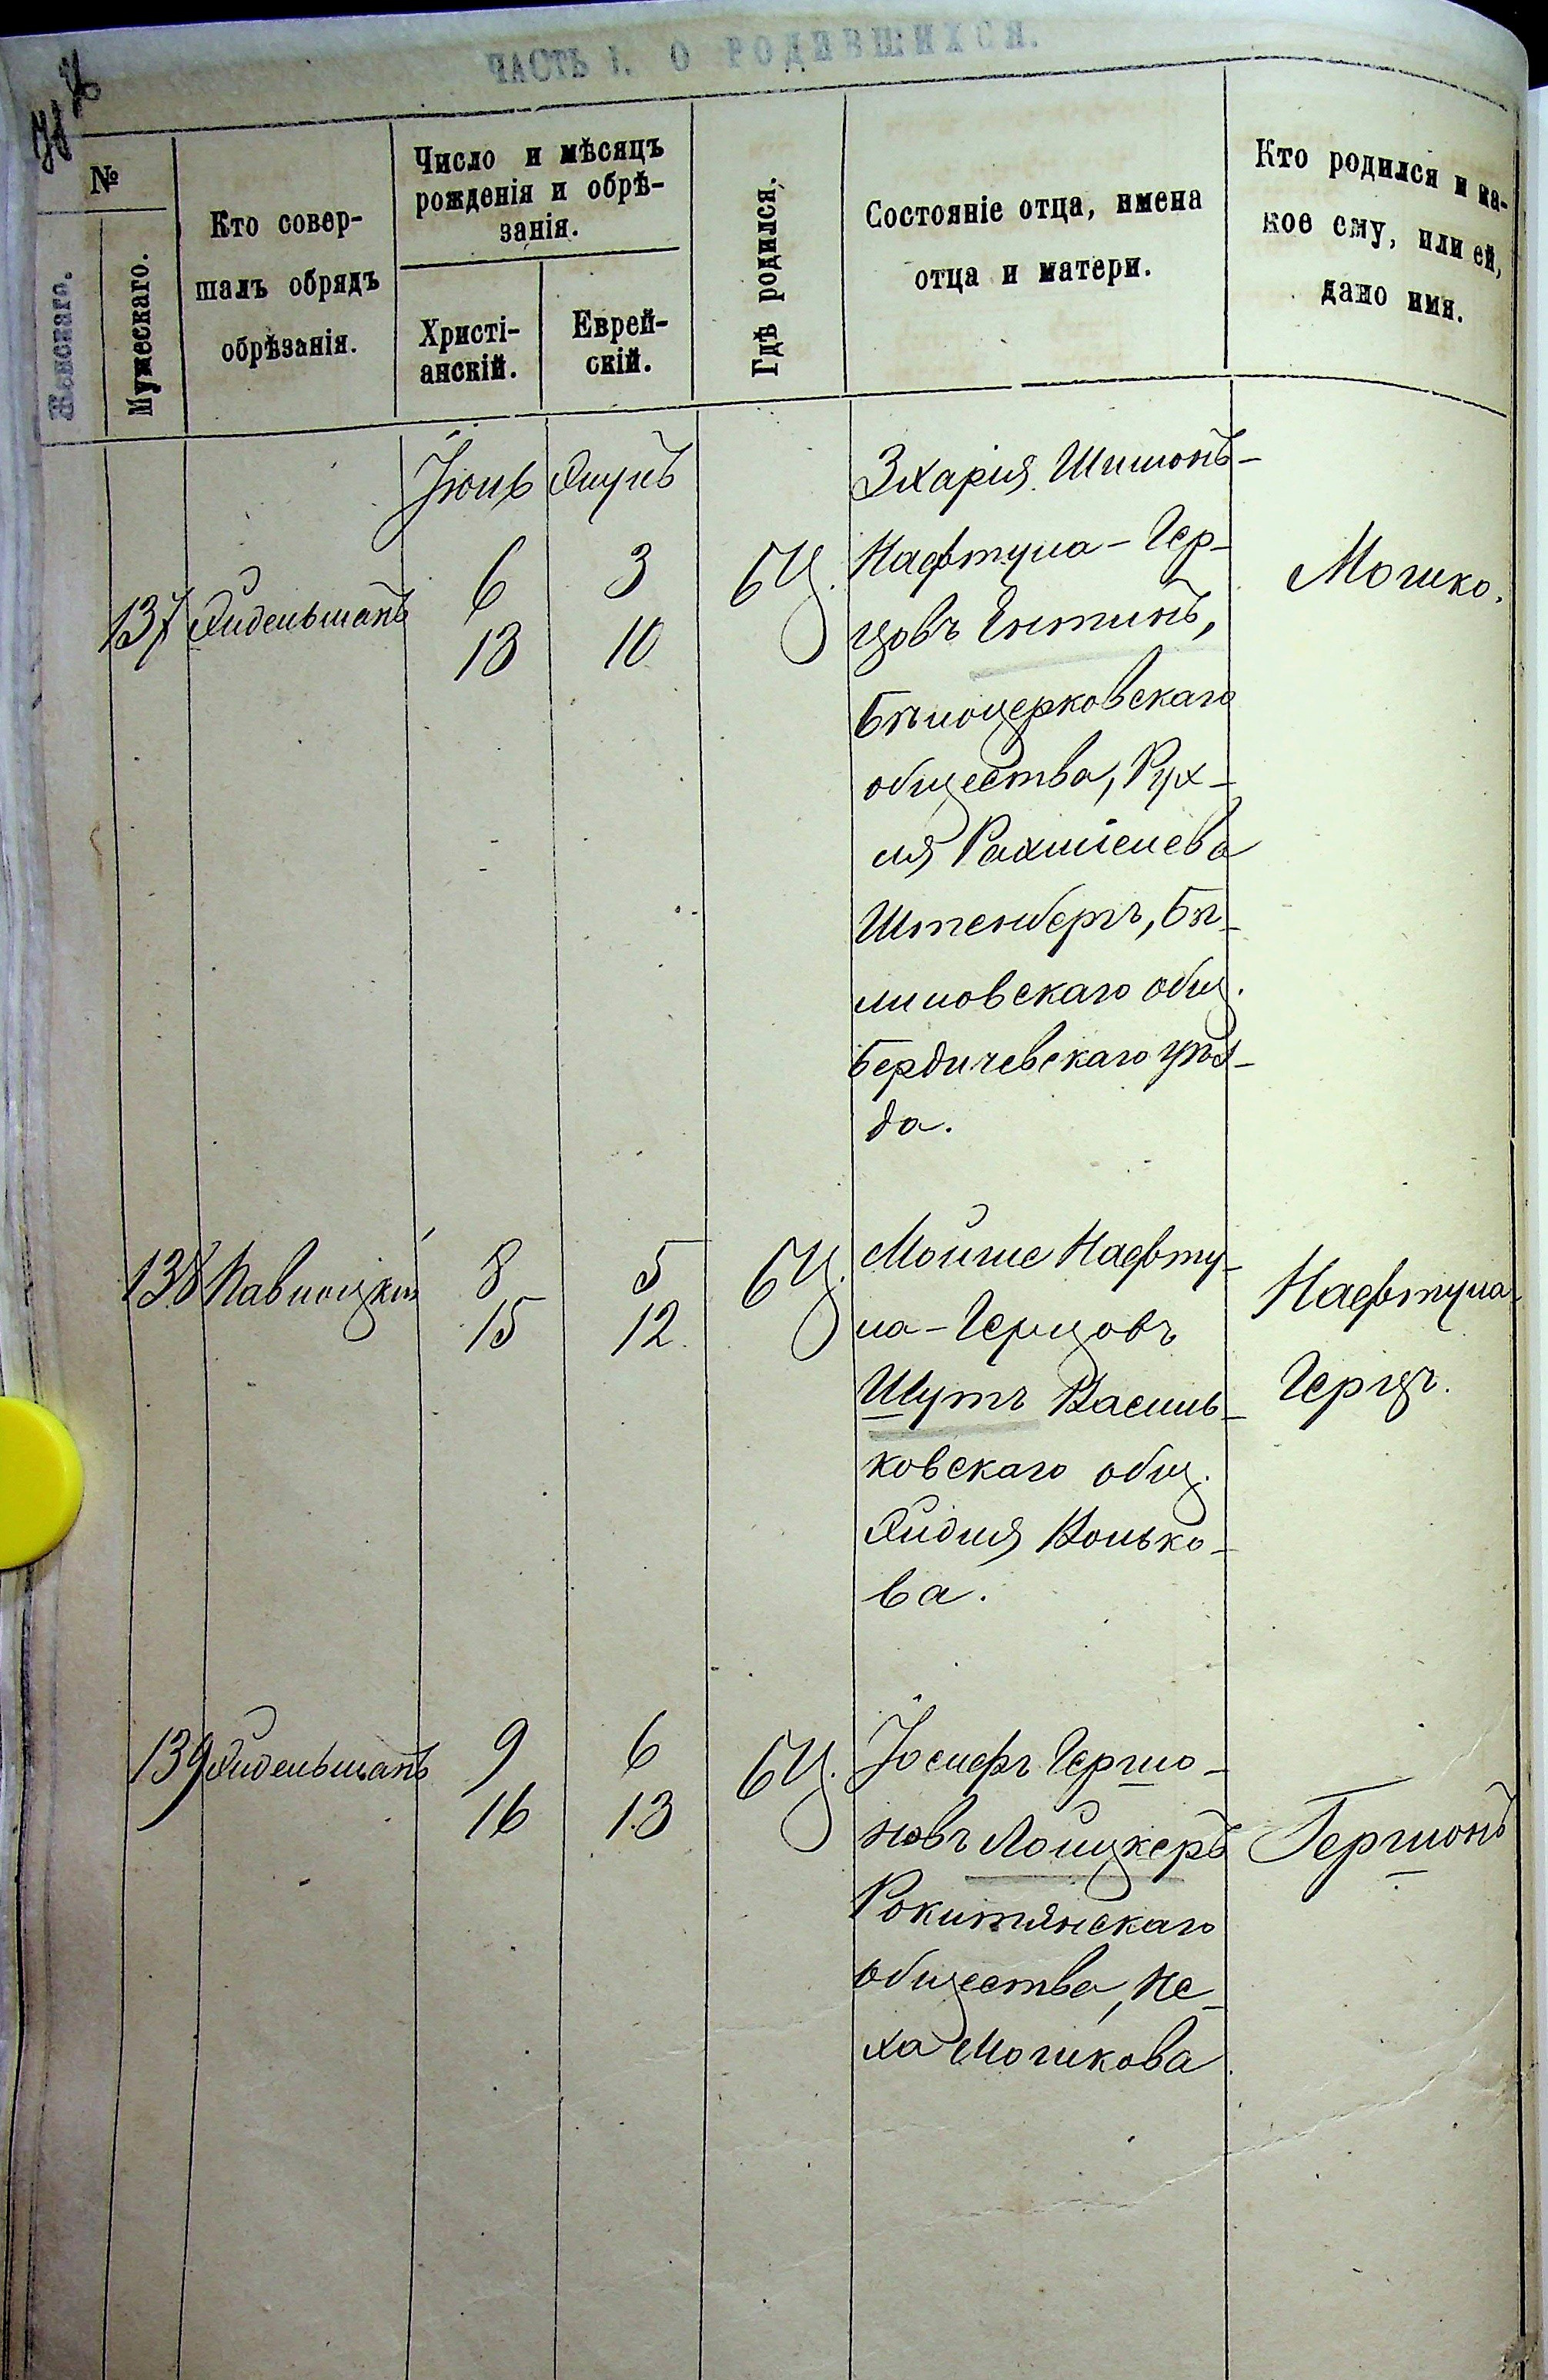 ЧАСТЬ I. О РОДИВШИХСЯ.
№
Женскаго.
Мужескаго.
Кто совер-
шалъ обрядъ
обрѣзанія.
Число и мѣсяцъ
рожденія и обрѣ-
занія.
Христі-
анскій.
Еврей-
скій.
Гдѣ родился.
Состояніе отца, имена
отца и матери.
Кто родился и ка-
кое ему, или ей,
дано имя.
Іюнь
137
6
13
3
10
БЦ.
Зхарія Шимонъ-
Нафтула-Гер-
цовъ Ентинъ,
Бѣлоцерковскаго
общества, Рух-
ля Рахміелева
Штенбергъ, Бѣ-
лиловскаго общ.
Бердичевскаго уѣз-
да.
Мошко.
138 Павлоцкій
8
15
5
12
БЦ.
Мойше Нафту-
ла-Герцовъ
Шутъ Василь-
ковскаго общ.
Волько-
ва.
Нафтула
Герцъ.
139
9
16
6
13
БЦ.
Іосифъ Гершо-
новъ Лойцкеръ
Рокитянскаго
общества, Не-
ха Мошкова
Гершонъ